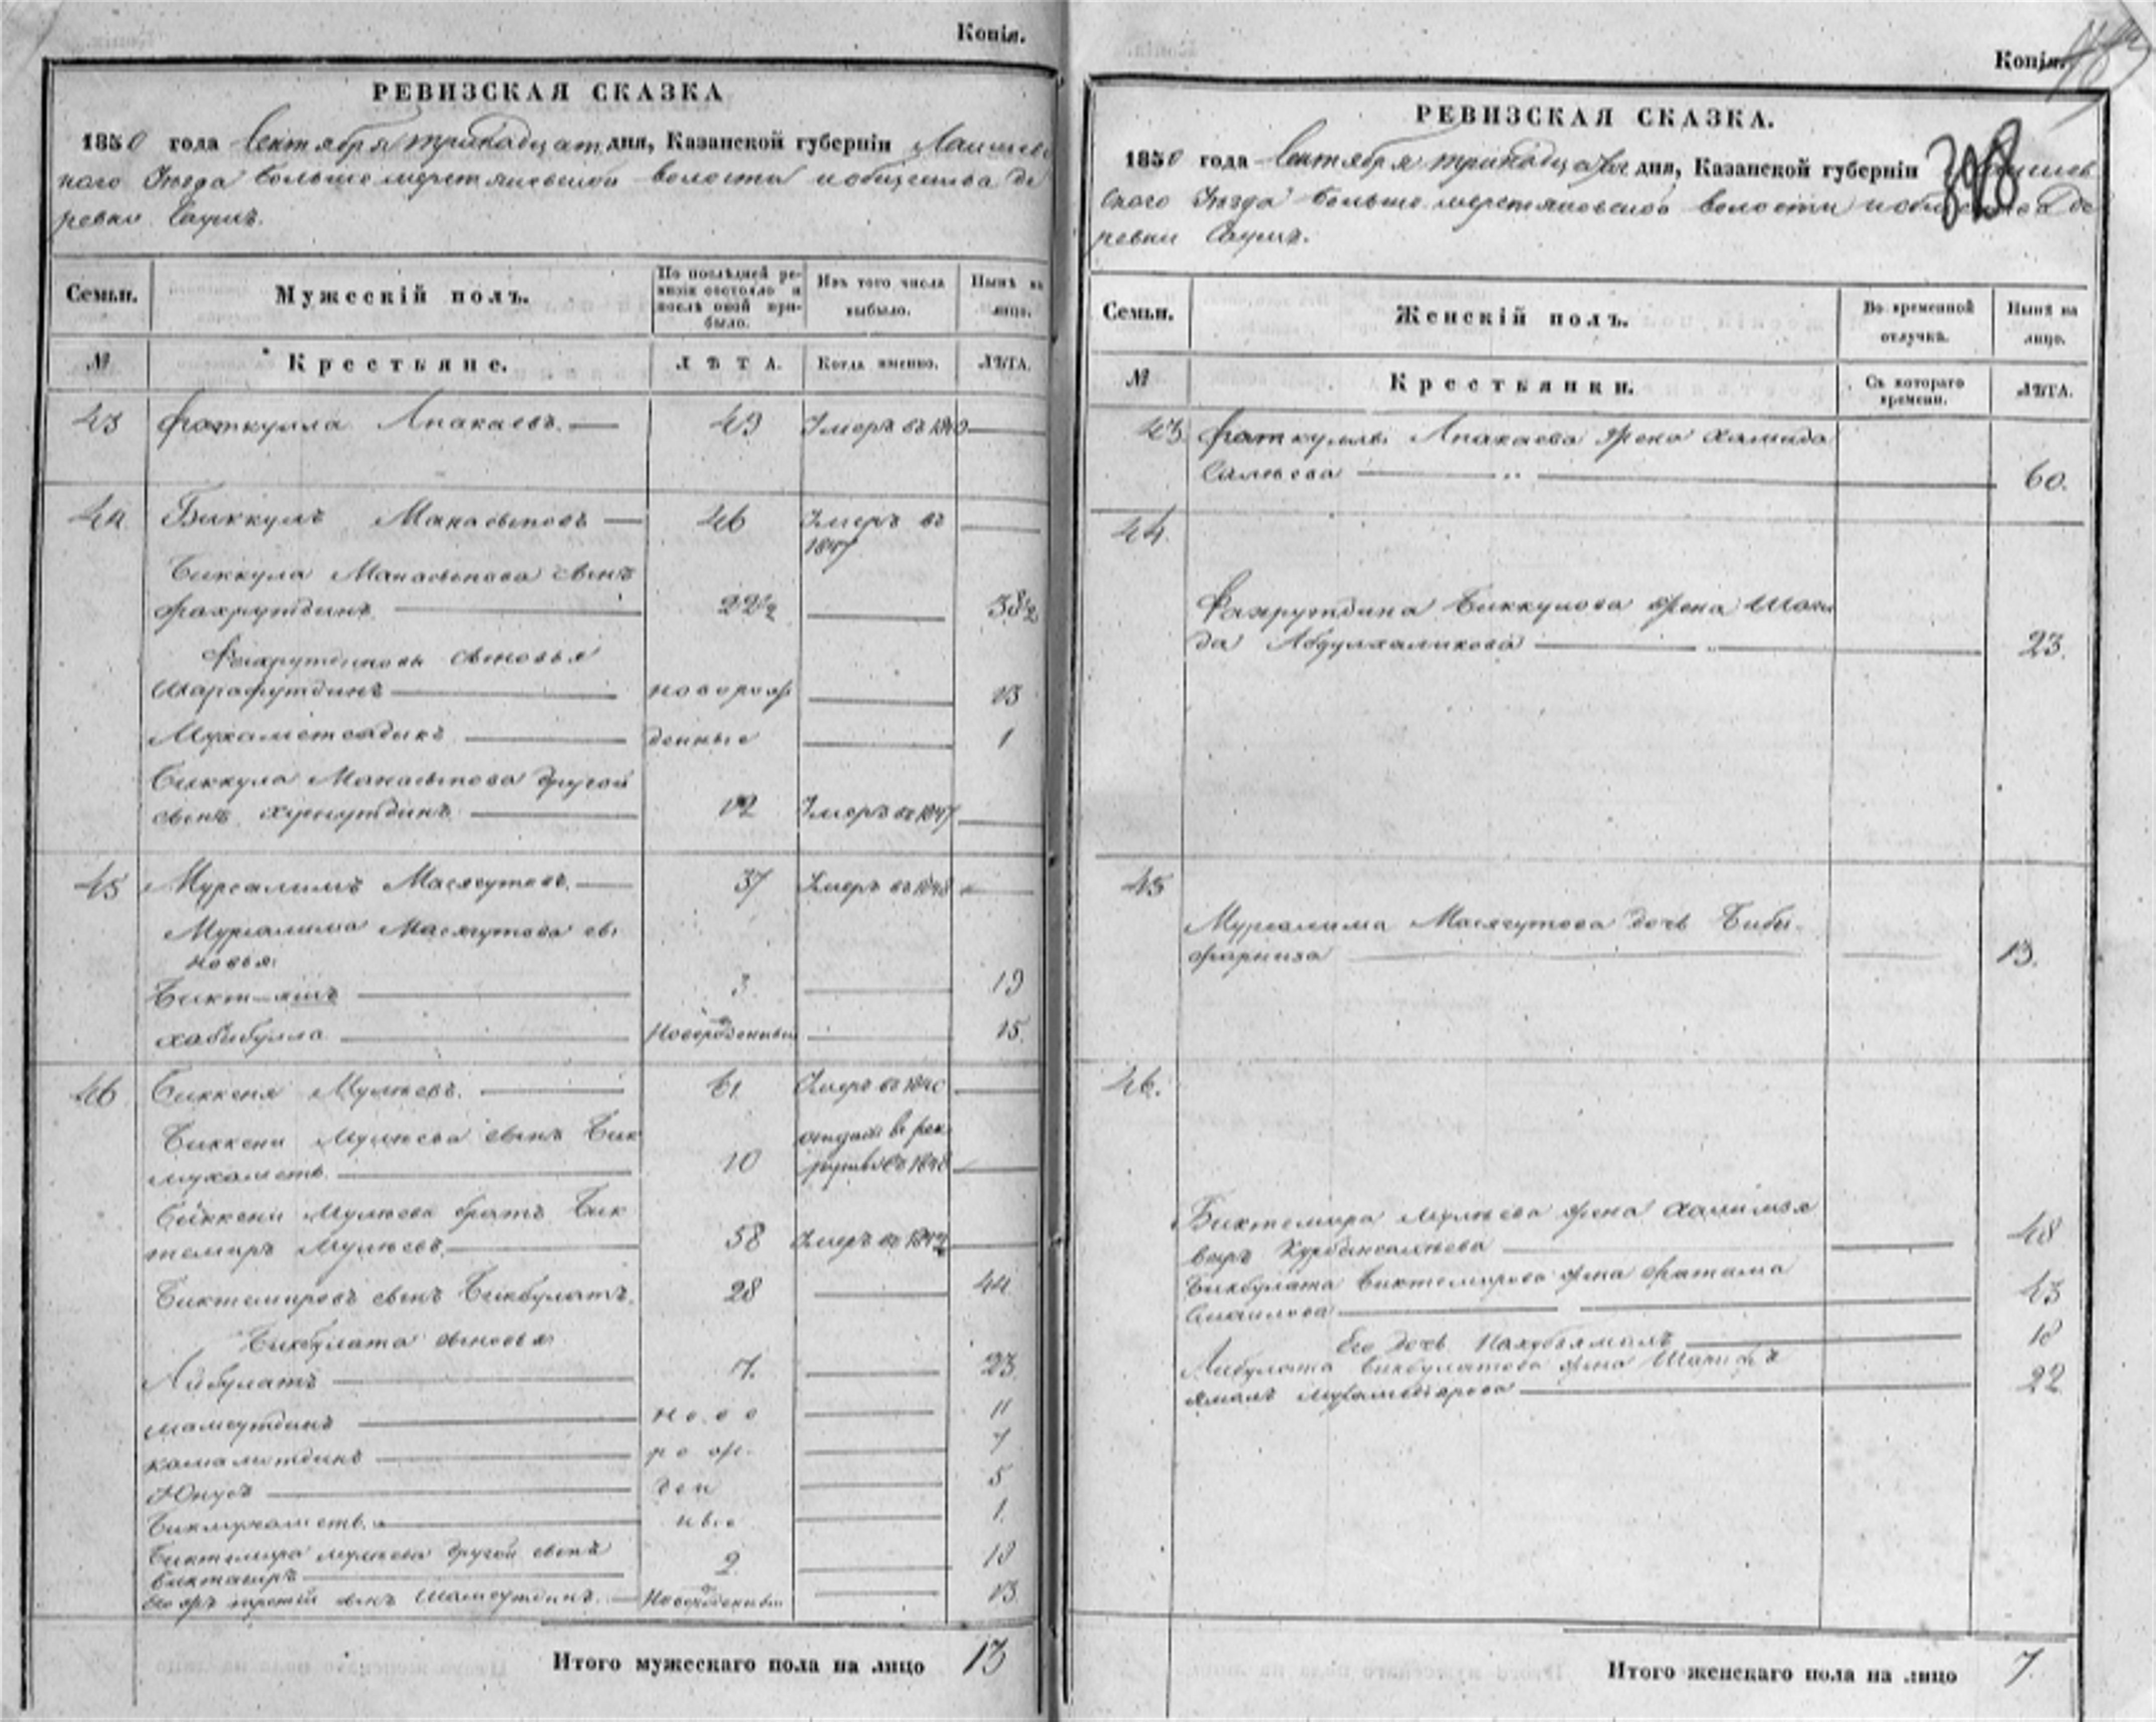 Копія.
РЕВИЗСКАЯ СКАЗКА
1850 года Сентября тринадцат дня, Казанской губерніи Лаишев
скаго Уезда Больше меретяковской волости и общества де
ревни Саушъ.
Семьи. Мужескій полъ. По послѣдней ревизіи состояло и послѣ оной прибыло. Изъ того числа выбыло. Нынѣ на лицо.
№ Крестьяне. ЛѢТА. Когда именно. ЛѢТА.
43 Фаткулла Апакаевъ 49 Умеръ въ 1840
44 Биккулъ Манасыповъ 46 Умеръ въ
1847
Биккула Манасыпова сынъ
Фахрутдинъ 22½ 38½
Фахрутдиновы сыновья
Шарафутдинъ новорож 13
Мухаметсадыкъ денные 1
Биккула Манасыпова другой
сынъ 12 Умеръ въ 1847
45 Мурсалимъ Масягутовъ 37 Умеръ въ
Мурсалима Масягутова сы
новья
Биктяшъ 3 19
Хабибулла Новорожденный 15
46 Биккеня Мулюевъ 61 Умеръ въ
Биккени Мулюева сынъ Бик
мухаметъ 10 отданъ въ рек
руты въ
Биккени Мулюева братъ Бик
темиръ Мулюевъ 58 Умеръ въ
Биктемировъ сынъ Бикбулатъ 28 44
Бикбулата сыновья
Айбулатъ 7. 23
ново 11
Камалитдинъ рож 7
Юнусъ ден 5
Бикмухаметъ ные 1.
Биктемира Мулюева другой сынъ
Биктагиръ 2 18
Его жъ третій сынъ Шамсутдинъ Новорожденный 13
Итого мужескаго пола на лицо 13
Копія.
РЕВИЗСКАЯ СКАЗКА.
348
1850 года Сентября тринадцатаго дня, Казанской губерніи Лаишев
скаго Уезда Больше меретяковской волости и общества де
ревни Саушъ.
Семьи. Женскій полъ. Во временной отлучкѣ. Нынѣ на лицо.
№ Крестьянки. Съ котораго времени. ЛѢТА.
43 Фаткуллы Апакаева жена Хамида
Салиева 60.
44.
Фахрутдина Биккулова жена Шаги
да Абдулхаликова 23.
45
Мурсалима Масягутова дочь Биби-
фарниза 13.
46.
Биктемира Мулюева жена
Курбангалиева 48
Бикбулата Биктемирова жена Фатама
43
Его дочь 18
Айбулата Бикбулатова жена
22
Итого женскаго пола на лицо 7.